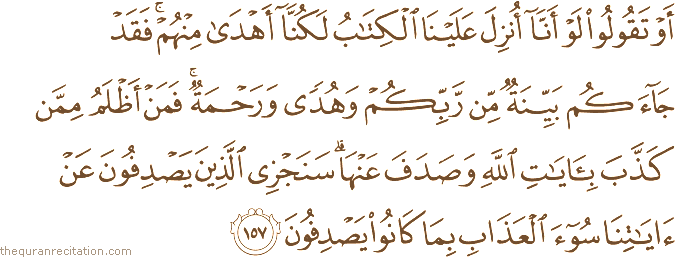 أَوْ تَقُولُوا۟ لَوْ أَنَّآ أُنزِلَ عَلَيْنَا ٱلْكِتَٰبُ لَكُنَّآ أَهْدَىٰ مِنْهُمْ ۚ فَقَدْ
جَآءَكُم بَيِّنَةٌ مِّن رَّبِّكُمْ وَهُدًى وَرَحْمَةٌ ۚ فَمَنْ أَظْلَمُ مِمَّن
كَذَّبَ بِـَٔايَٰتِ ٱللَّهِ وَصَدَفَ عَنْهَا ۗ سَنَجْزِى ٱلَّذِينَ يَصْدِفُونَ عَنْ
ءَايَٰتِنَا سُوٓءَ ٱلْعَذَابِ بِمَا كَانُوا۟ يَصْدِفُونَ ١٥٧
thequranrecitation.com